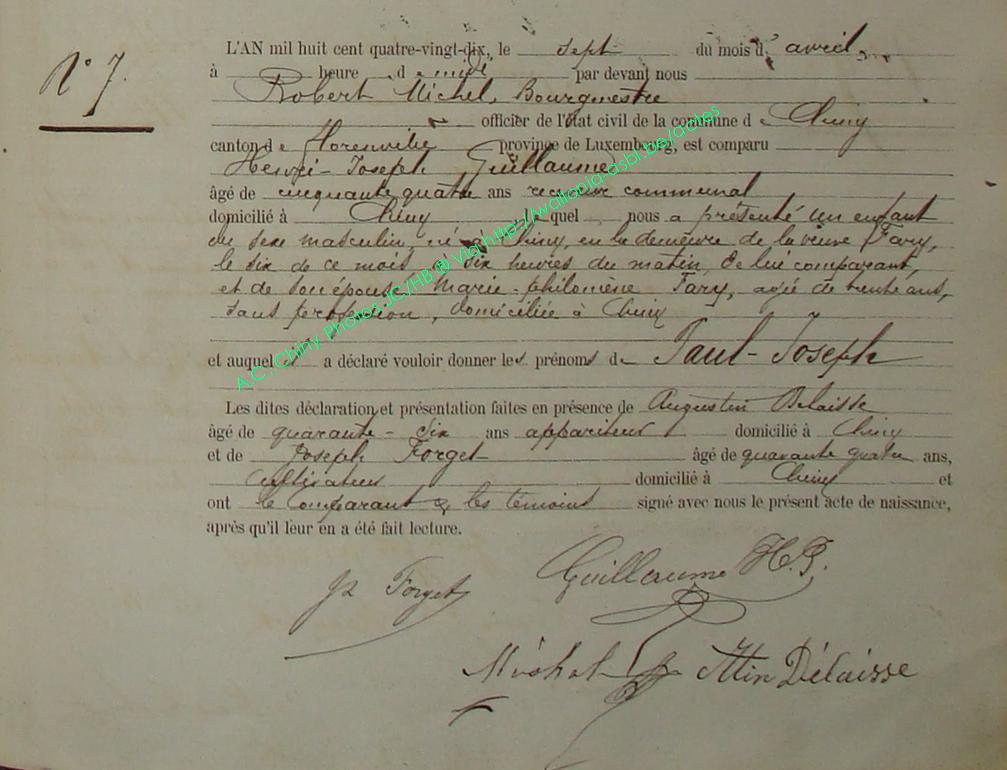 N° 7.
L'AN mil huit cent quatre-vingt-dix, le sept du mois d'avril
à heure de midi par devant nous
Robert Michel, Bourgmestre
officier de l'état civil de la commune de Chiny
canton de Florenville province de Luxembourg, est comparu
Henri-Joseph Guillaume
âgé de cinquante quatre ans receveur communal
domicilié à Chiny lequel nous a présenté un enfant
du sexe masculin, né à Chiny, en la demeure de la veuve Fary,
le six de ce mois à six heures du matin, de lui comparant,
et de son épouse Marie-philomène Fary, agée de trente ans,
sans profession, domiciliée à Chiny
et auquel il a déclaré vouloir donner les prénoms de Paul-Joseph
Les dites déclaration et présentation faites en présence de Augustin Delaisse
âgé de quarante-six ans appariteur domicilié à Chiny
et de Joseph Forget âgé de quarante quatre ans,
cultivateur domicilié à Chiny et
ont le comparant & les témoins signé avec nous le présent acte de naissance,
après qu'il leur en a été fait lecture.
Forget
Guillaume H.J.
Michel
Attin Délaisse
A.C. Chiny Photos JC/HB ® Via http://wallonia-asbl.be/actes